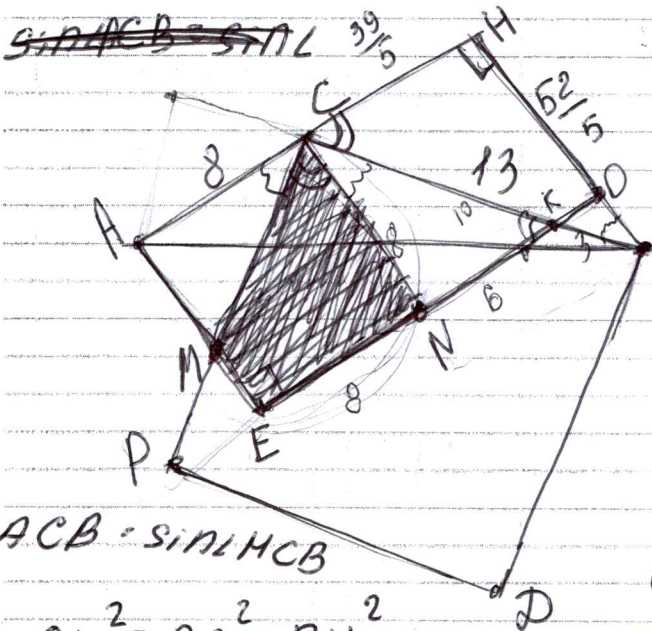 sinLACB = sinL
39/5
H
C
52/5
8
13
D
A
10
K
8
3
6
M
N
8
E
P
ACB = sinLHCB
D
2 2 2